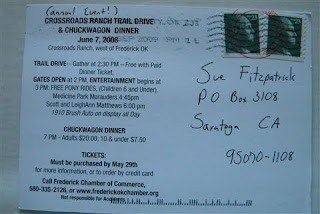 (annual Event!)
CROSSROADS RANCH TRAIL DRIVE
& CHUCKWAGON DINNER
June 7, 2008
Crossroads Ranch, west of Frederick OK
TRAIL DRIVE – Gather at 2:30 PM – Free with Paid
Dinner Ticket.
GATES OPEN at 2 PM, ENTERTAINMENT begins at
3 PM. FREE PONY RIDES, (Children 6 and Under).
Medicine Park Marauders 4:45pm
Scott and LeighAnn Matthews 6:00 pm
1910 Brush Auto on display All Day
CHUCKWAGON DINNER
7 PM - Adults $20.00, 10 & under $7.50
TICKETS:
Must be purchased by May 29th
for more information, or to order by credit card
Call Frederick Chamber of Commerce,
580-335-2126, or www.frederickokchamber.org
Not responsible for Accidents
Sue Fitzpatrick
P O Box 3108
Saratoga CA
95070-1108